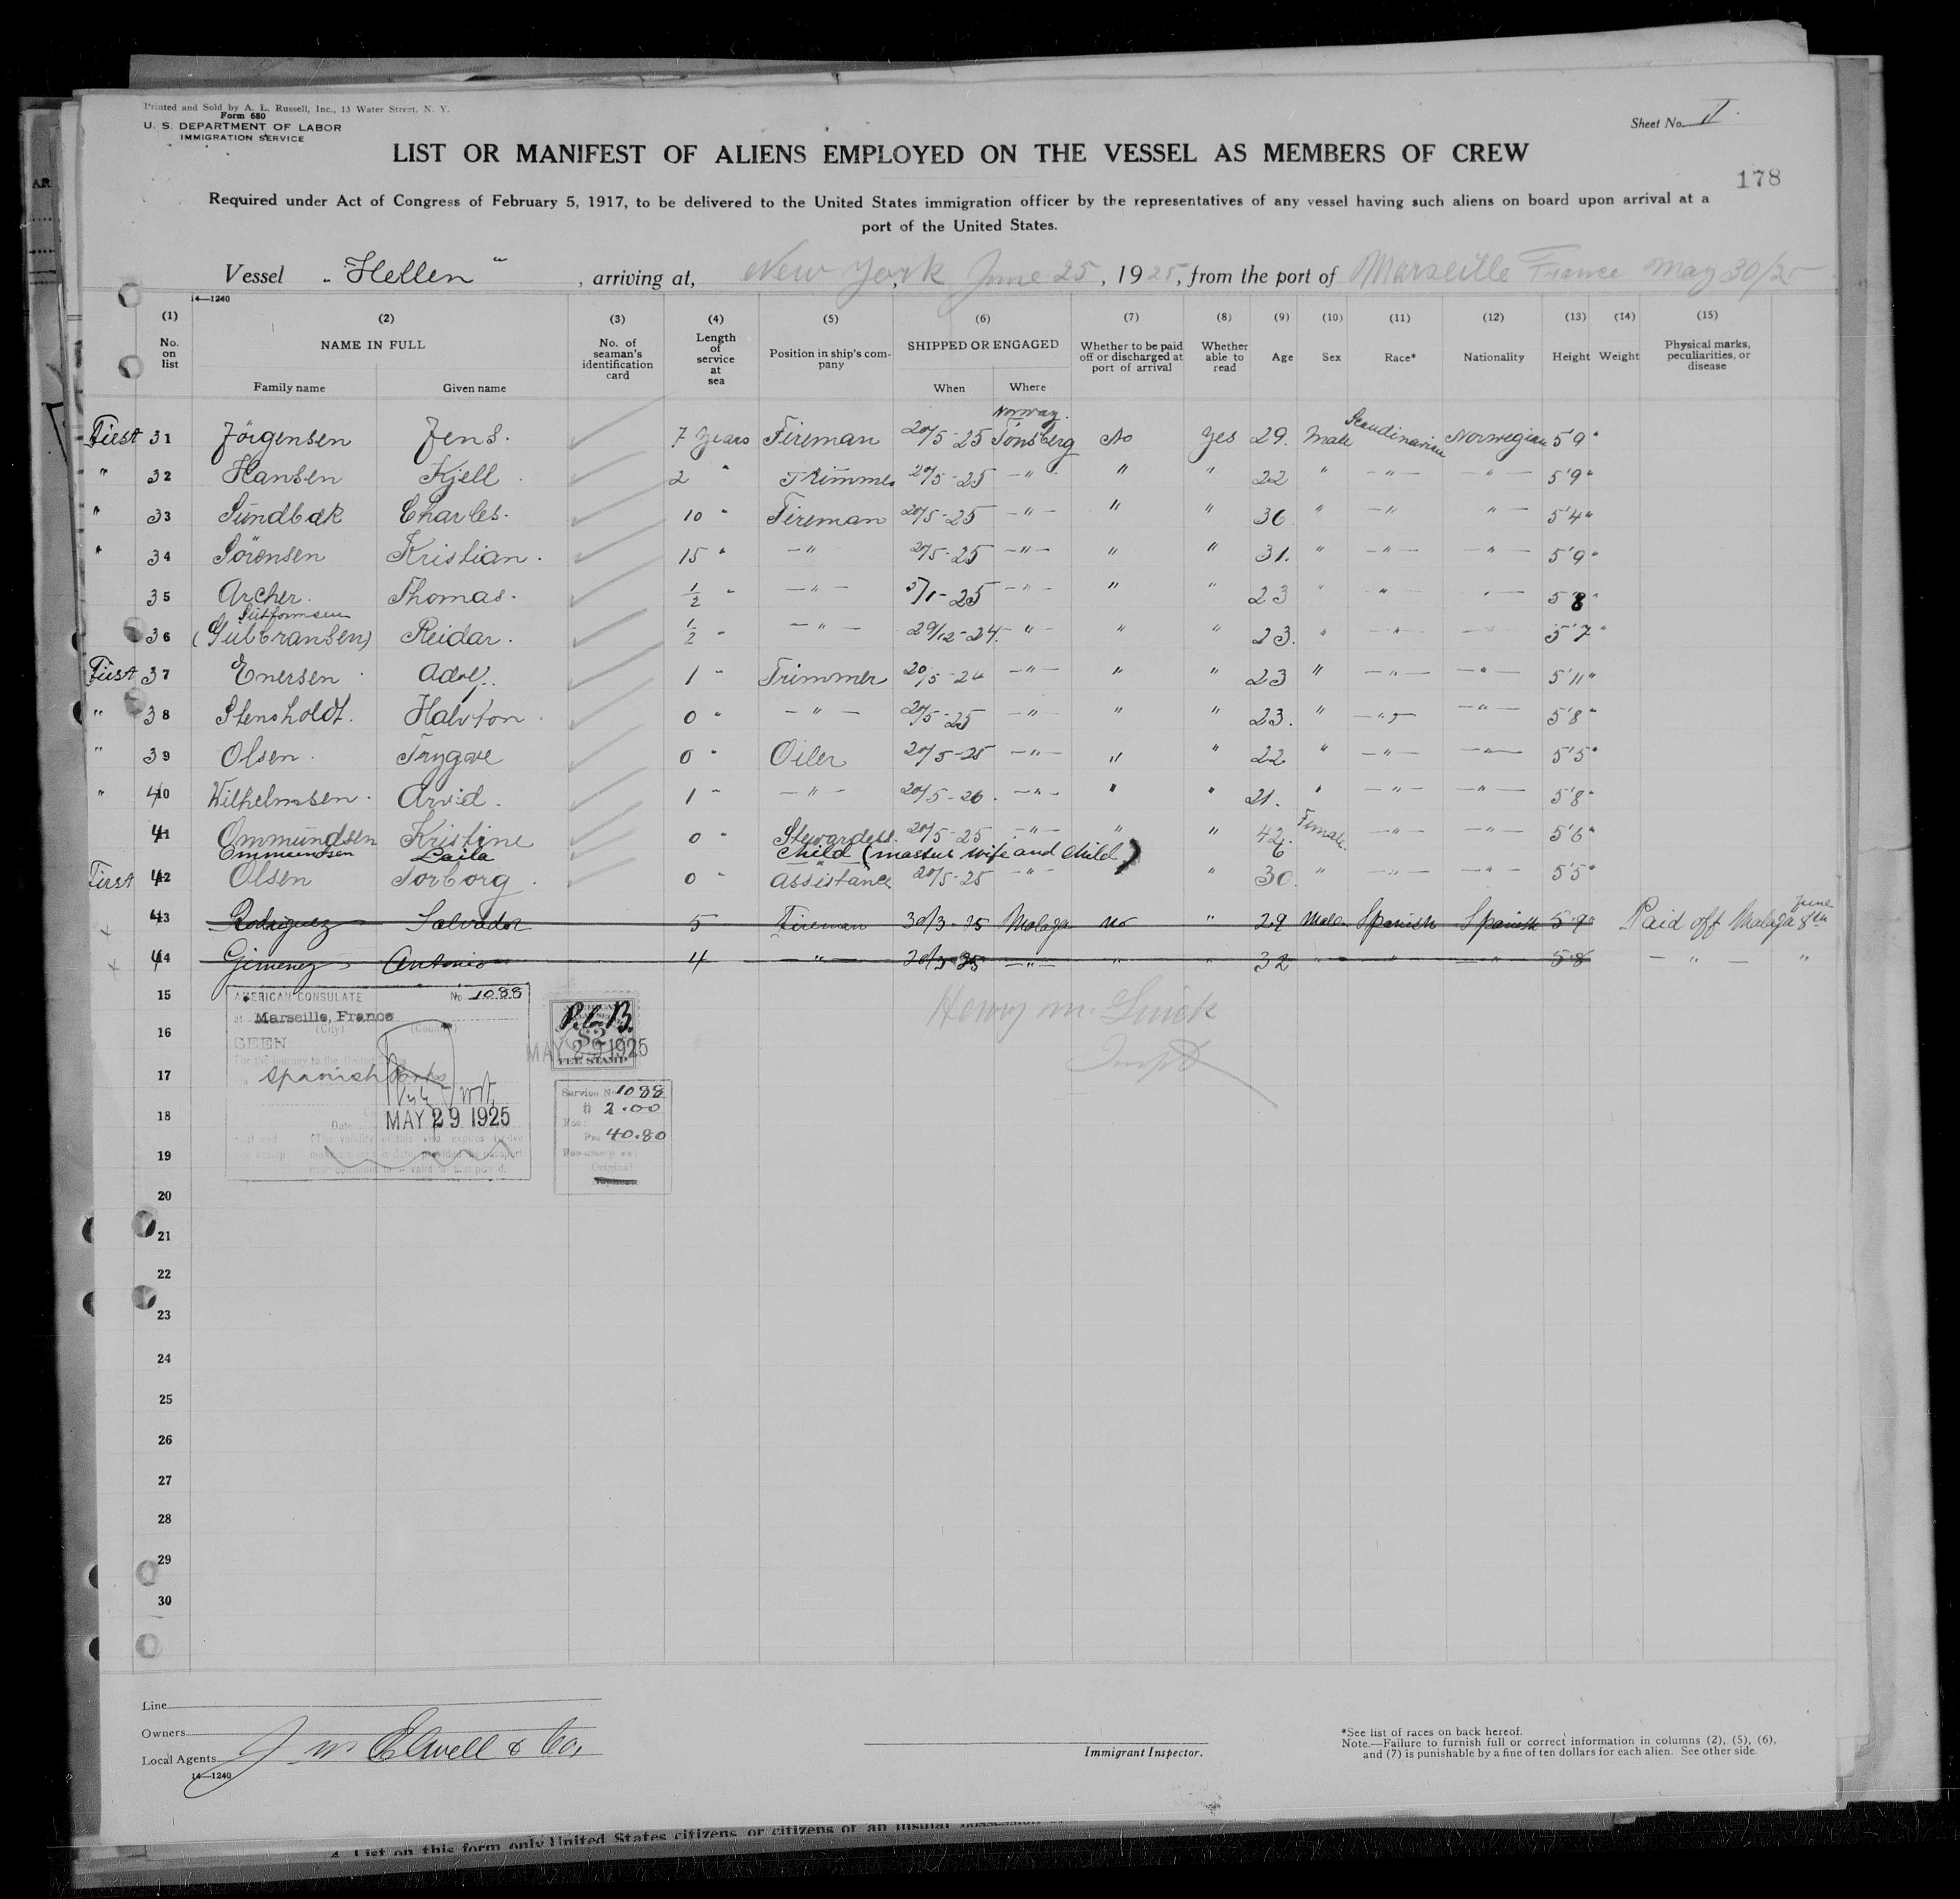 Printed and Sold by A. L. Russell, Inc., 13 Water Street, N. Y.
Form 680
U. S. DEPARTMENT OF LABOR
IMMIGRATION SERVICE
Sheet No. II.
LIST OR MANIFEST OF ALIENS EMPLOYED ON THE VESSEL AS MEMBERS OF CREW
178
Required under Act of Congress of February 5, 1917, to be delivered to the United States immigration officer by the representatives of any vessel having such aliens on board upon arrival at a
port of the United States.
Vessel "Hellen", arriving at, New York, June 25, 1925, from the port of Marseille France May 30/25
14—1240
(1) (2) (3) (4) (5) (6) (7) (8) (9) (10) (11) (12) (13) (14) (15)
No. on list NAME IN FULL Family name Given name No. of seaman's identification card Length of service at sea Position in ship's company SHIPPED OR ENGAGED When Where Whether to be paid off or discharged at port of arrival Whether able to read Age Sex Race* Nationality Height Weight Physical marks, peculiarities, or disease
First 31 Jörgensen Jens. 7 years Fireman 20/5-25 Norway. Tönsberg No Yes 29. Male Scandinavian Norwegian 5'9"
" 32 Hansen Kjell. 2 " Trimmer 20/5-25 —"— " " 22 " —"— —"— 5'9"
" 33 Sundbak Charles. 10 " Fireman 20/5-25 —"— " " 36 " —"— "— 5'4"
" 34 Sörensen Kristian. 15 " —"— 20/5-25 —"— " " 31. " —"— —"— 5'9"
35 Archer. Thomas. ½ " —"— 5/1-25 —"— " " 23 " —"— —"— 5'8"
36 (Gulbransen) Reidar. ½ " —"— 29/12-24. —"— " " 23. " —"— —"— 5'7"
First 37 Enersen Adolf. 1 " Trimmer 20/5-24 —"— " " 23 " —"— —"— 5'11"
" 38 Stensholdt. 0 " —"— 20/5-25 —"— " " 23. " —"— —"— 5'8"
" 39 Olsen. Trygve 0 " Oiler 20/5-25 —"— " " 22 " —"— —"— 5'5"
" 40 Wilhelmsen. Arvid. 1 " —"— —"— " " 21. " —"— —"— 5'8"
41 Ommundsen Kristine 0 " Stewardess. 20/5-25 —"— " " 42. Female. —"— —"— 5'6"
Ommundsen Laila Child (masters wife and child) 6
First 42 Olsen Torborg. 0 " assistance 20/5-25 —"— " 30. —"— —"— 5'5"
43 Rodriguez Salvador 5 Fireman 30/3-25 Malaga No " 29 Male Spanish Spanish 5'9" Paid off Malaga June 8th
44 Gimenez Antonio 4 —"— 30/3-25 —"— " " 32 " " —"— 5'8 —"— "
15
16
17
18
19
20
21
22
23
24
25
26
27
28
29
30
AMERICAN CONSULATE No 1088
at Marseille, France
(City) (Country)
SEEN
For the journey to the United States
Spanish Ports
Date MAY 29 1925
$2
MAY 29 1925
FEE STAMP
Service No 1088
# 2.00
40.80
Original
Henry M.
Insp
Line
Owners
Local Agents J M Elwell & Co,
14—1240
Immigrant Inspector.
*See list of races on back hereof.
Note.—Failure to furnish full or correct information in columns (2), (5), (6),
and (7) is punishable by a fine of ten dollars for each alien. See other side.
4. List on this form only United States citizens or citizens of an insular possession